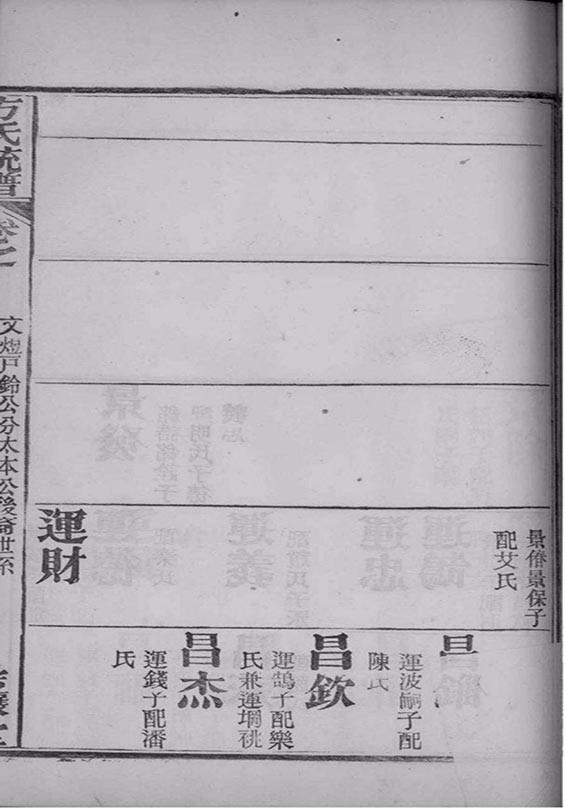 景偆景保子
配艾氏
運財
昌
運波嗣子配
陳氏
昌欽
運鵠子配樂
氏兼運堈祧
昌杰
運錢子配潘
氏
方氏統譜
卷之
文煜戶鈴公分太本公後裔世系